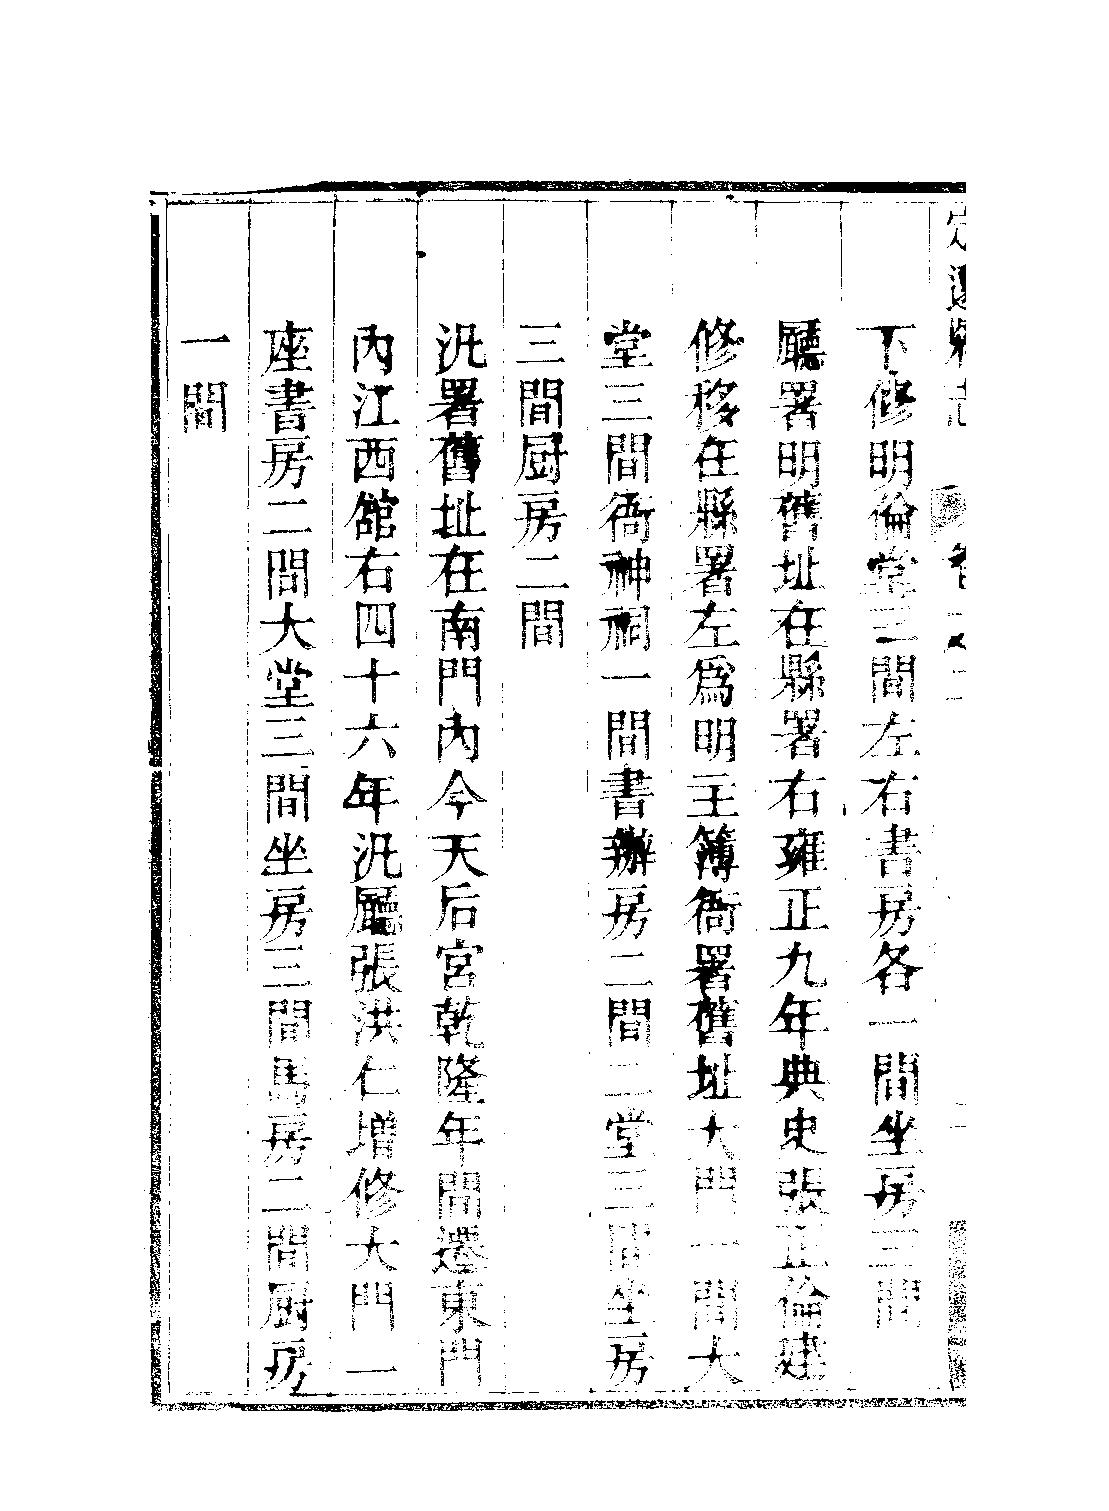 定遠縣志
下修明倫堂三間左右書房各一間坐房三間
廳署明舊址在縣署右雍正九年典史張正倫建
修移在縣署左爲明主簿衙署舊址大門一間大
堂三間衙神祠一間書辦房二間二堂三間坐房
三間厨房二間
汛署舊址在南門內今天后宮乾隆年間遷東門
內江西館右四十六年汛廳張洪仁增修大門一
座書房二間大堂三間坐房三間馬房二間厨房
一間